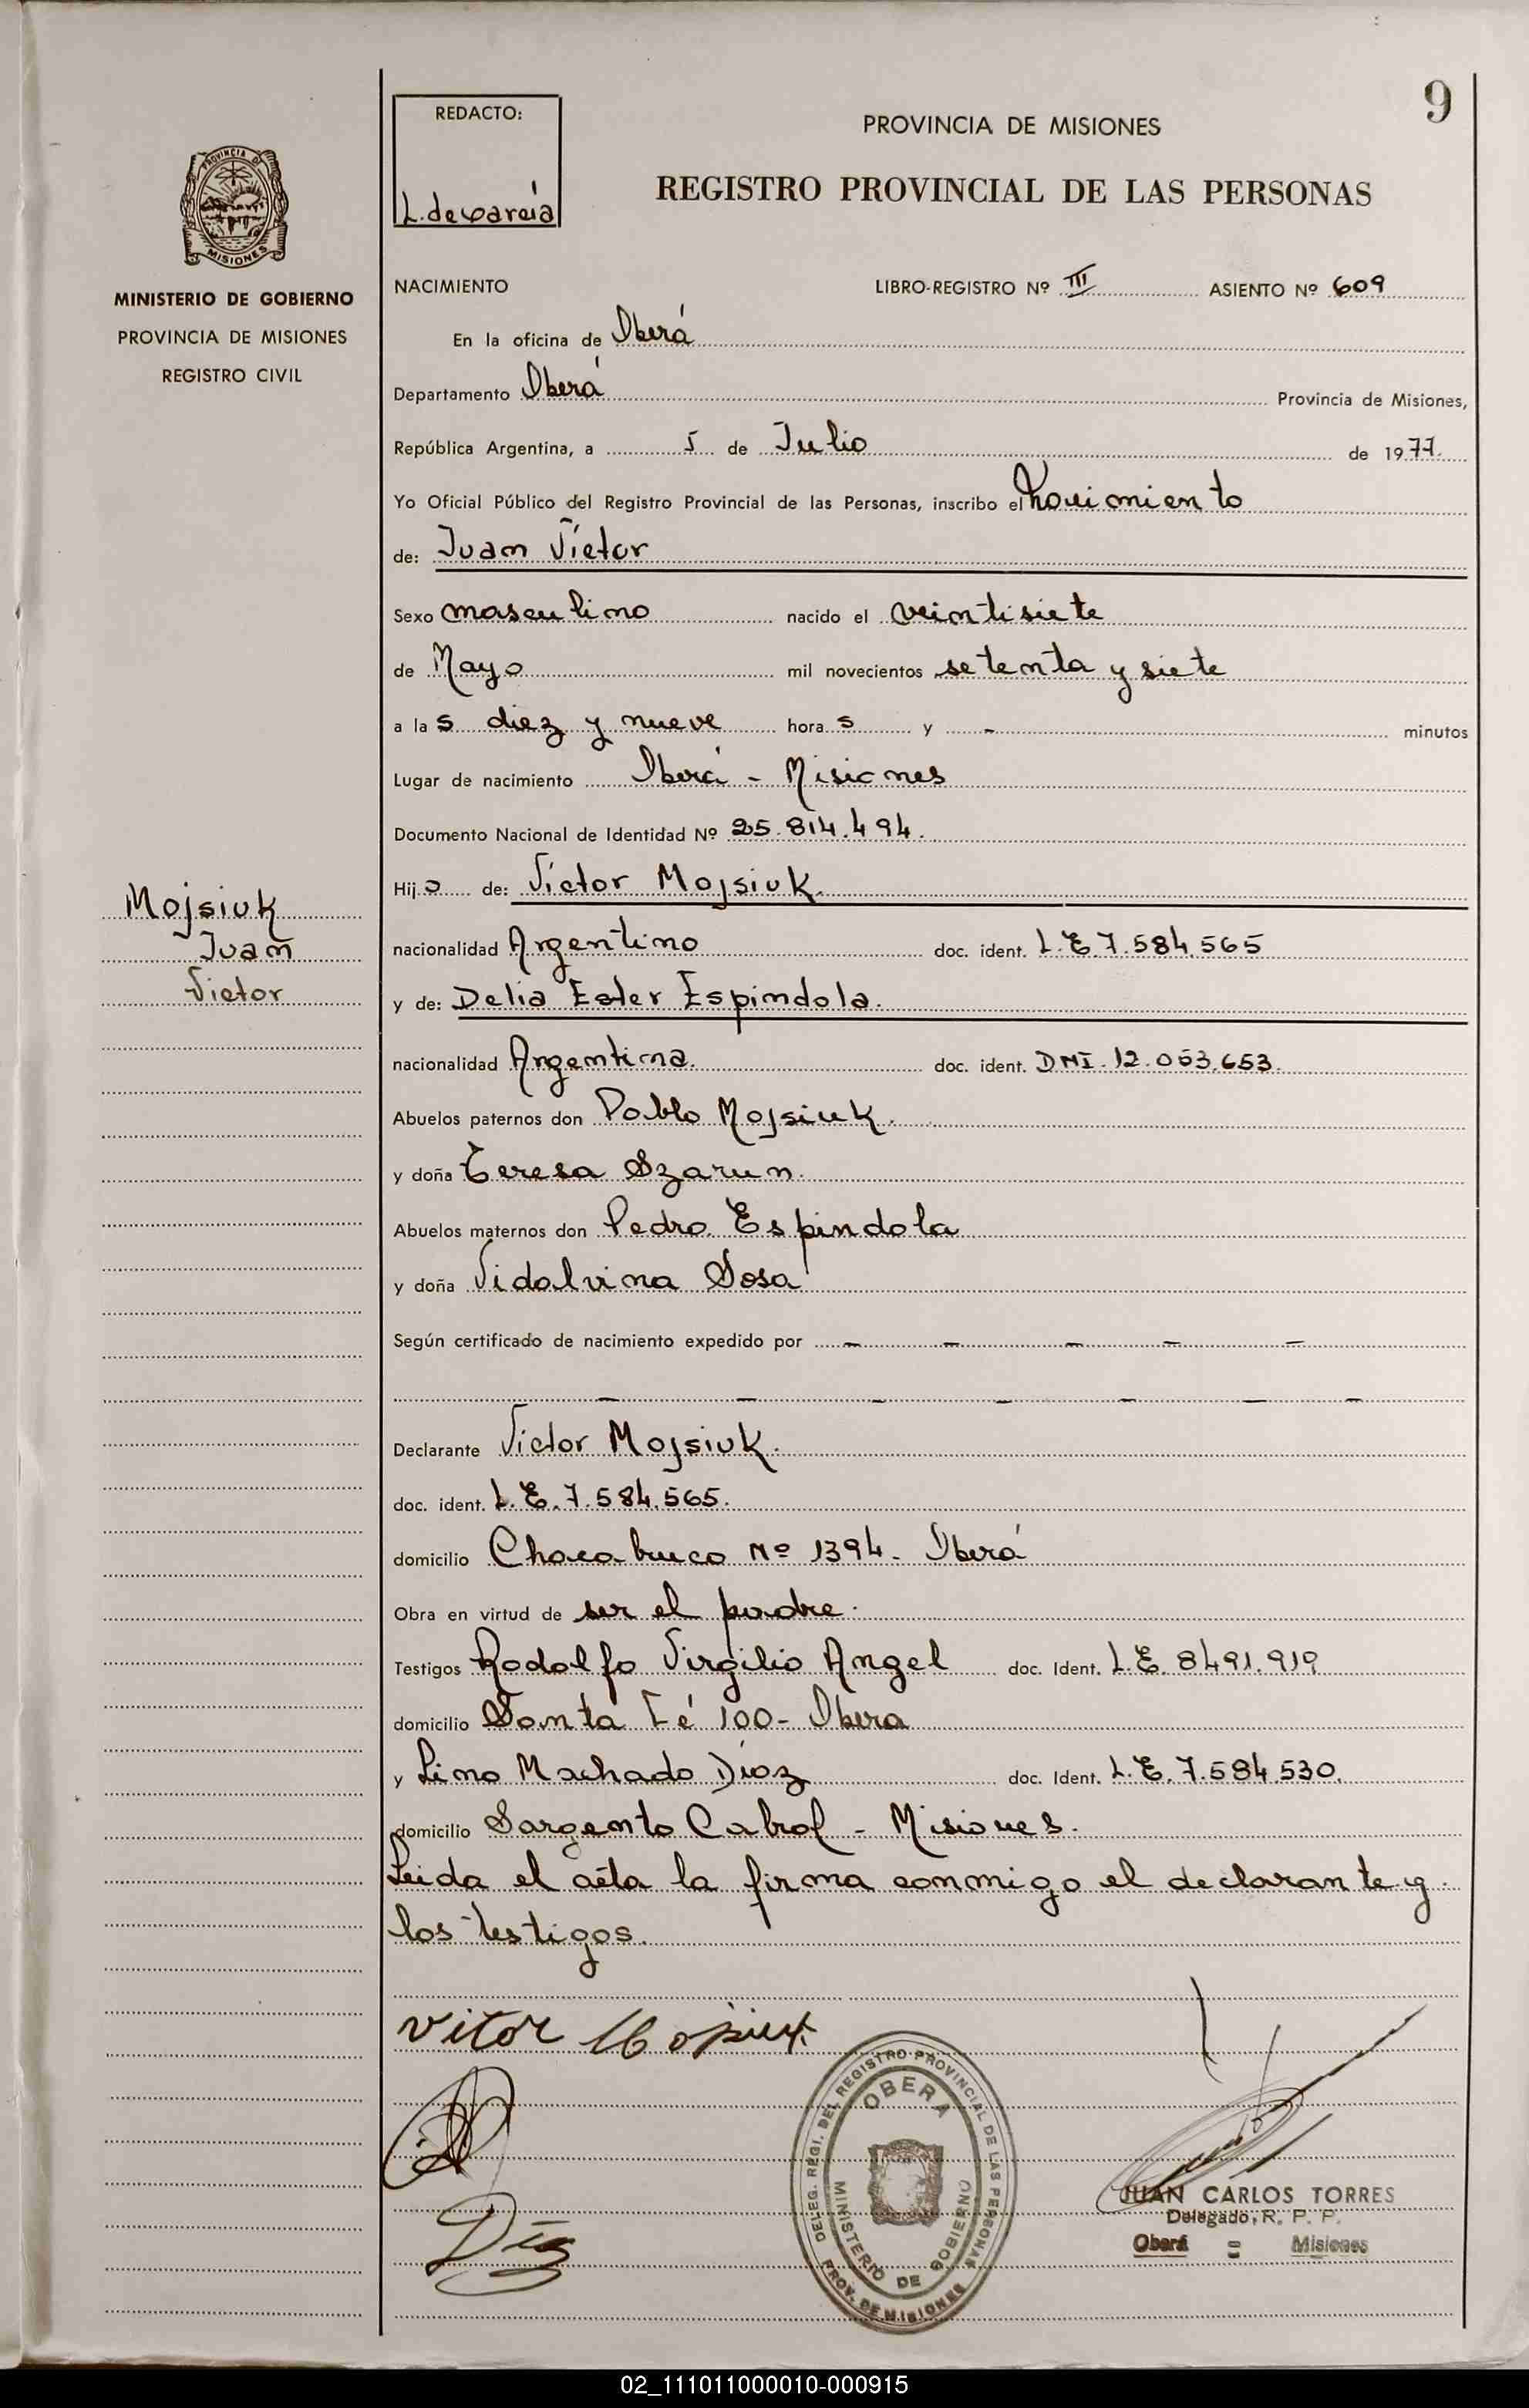 9
REDACTO:
L. de Garcia
PROVINCIA DE MISIONES
REGISTRO PROVINCIAL DE LAS PERSONAS
PROVINCIA DE
MISIONES
MINISTERIO DE GOBIERNO
PROVINCIA DE MISIONES
REGISTRO CIVIL
NACIMIENTO LIBRO-REGISTRO Nº III ASIENTO Nº 609
En la oficina de Oberá
Departamento Oberá Provincia de Misiones,
República Argentina, a 5 de Julio de 1977
Yo Oficial Público del Registro Provincial de las Personas, inscribo el Nacimiento
de: Juan Víctor
Sexo masculino nacido el veintisiete
de Mayo mil novecientos setenta y siete
a la s diez y nueve hora s y - minutos
Lugar de nacimiento Oberá - Misiones
Documento Nacional de Identidad Nº 25.814.494.
Hij o de: Víctor Mojsiuk.
Mojsiuk
Juan
Victor
nacionalidad Argentino doc. ident. L.E. 7.584.565
y de: Delia Ester Espindola.
nacionalidad Argentina. doc. ident. DNI. 12.053.653.
Abuelos paternos don Pablo Mojsiuk.
y doña Teresa Szarun.
Abuelos maternos don Pedro Espindola
y doña Vidalvina Sosa
Según certificado de nacimiento expedido por - - - - -
- - - - - - -
Declarante Victor Mojsiuk.
doc. ident. L.E. 7.584.565.
domicilio Chacabuco Nº 1394. Oberá
Obra en virtud de ser el padre.
Testigos Rodolfo Virgilio Angel doc. Ident. L.E. 8491.919
domicilio Santa Fé 100- Obera
y Lino Machado Díaz doc. Ident. L.E. 7.584.530.
domicilio Sargento Cabral - Misiones.
Leida el acta la firma conmigo el declarante y
los testigos.
Vitor Mojsiuk
Díaz
DELEG. REGI. DEL REGISTRO PROVINCIAL DE LAS PERSONAS
OBERA
MINISTERIO DE GOBIERNO
PROV. DE MISIONES
JUAN CARLOS TORRES
Delegado, R. P. P.
Oberá - Misiones
02_111011000010-000915